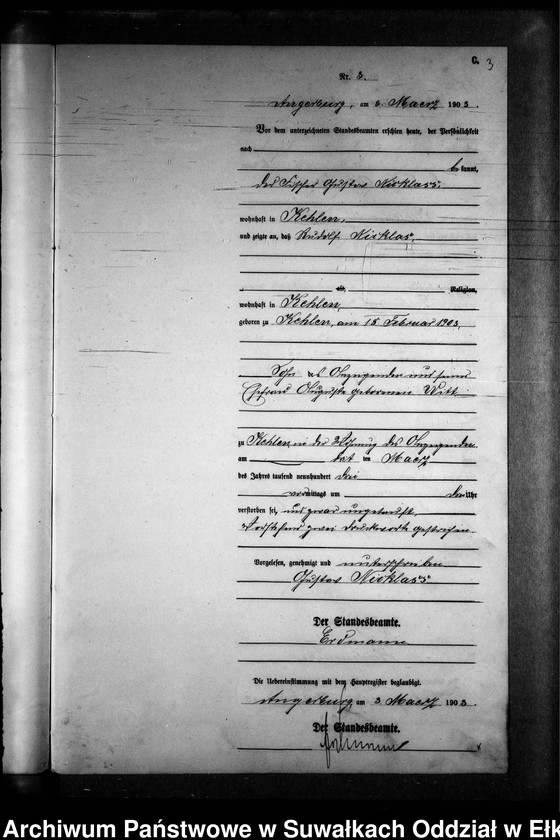 C.
3
Nr. 3.
Angerburg, am 3. Maerz 1903.
Vor dem unterzeichneten Standesbeamten erschien heute, der Persönlichkeit
nach
be kannt,
der Fischer Gustav Nicklass.
wohnhaft in Kehlen,
und zeigte an, daß Rudolf Nicklass,
alt, Religion,
wohnhaft in Kehlen,
geboren zu Kehlen, am 15 Februar 1903,
Sohn des Anzeigenden und seiner
Ehefrau Auguste geborenen Witt
zu Kehlen, in der Wohnung des Anzeigenden
am ten Maerz
des Jahres tausend neunhundert drei
vormittags um drei Uhr
verstorben sei, und zwar ungetauft.
Vorstehend zwei Druckworte gestrichen.
Vorgelesen, genehmigt und unterschrieben
Gustav Nicklass
Der Standesbeamte.
Erdmann
Die Uebereinstimmung mit dem Hauptregister beglaubigt.
Angerburg, am 3. Maerz 1903.
Der Standesbeamte.
Archiwum Państwowe w Suwałkach Oddział w Ełk